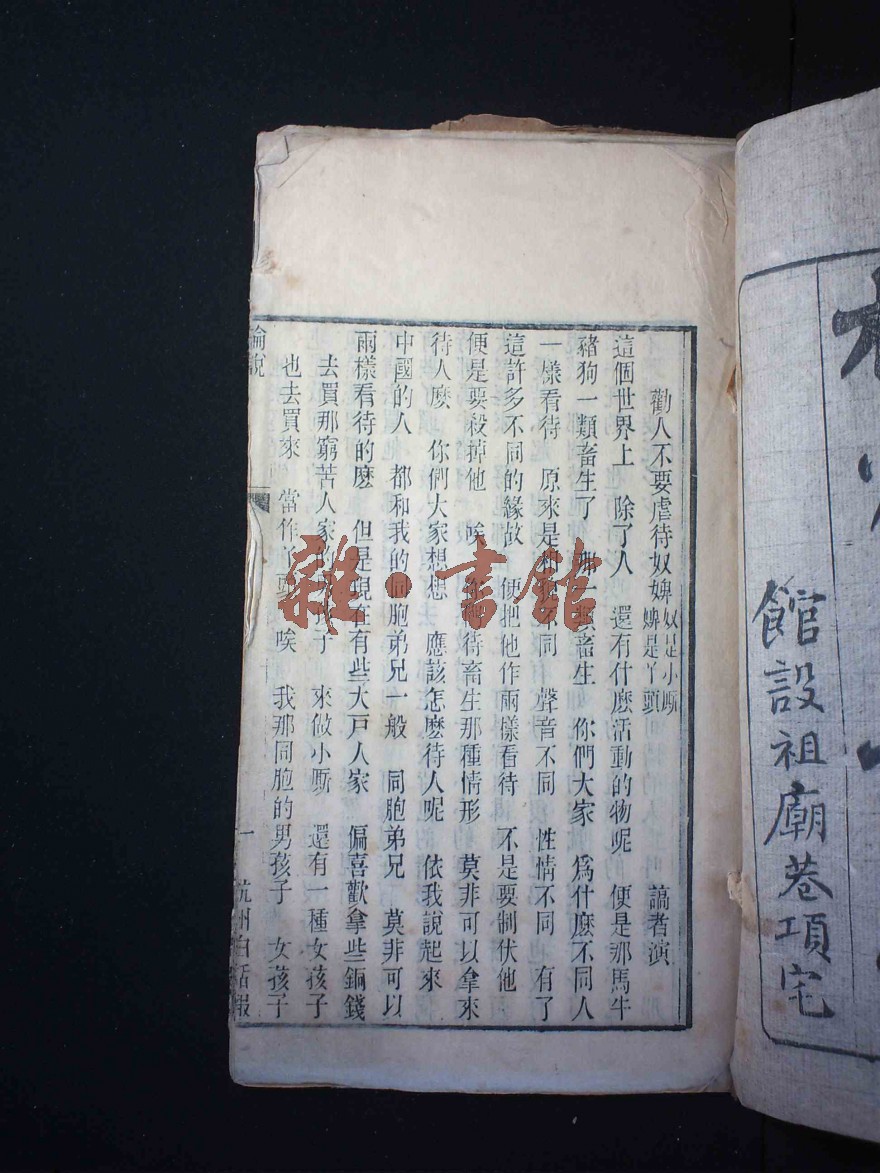 館設祖廟巷項宅
勸人不要虐待奴婢 奴是小厮 婢是丫頭 謞者演
這個世界上 除了人 還有什麽活動的物呢 便是那馬牛
豬狗一類畜生了 那一類畜生 你們大家 爲什麽不同人
一樣看待 原來是 不同 聲音不同 性情不同 有了
這許多不同的緣故 便把他作兩樣看待 不是要制伏他
便是要殺掉他 唉 待畜生那種情形 莫非可以拿來
待人麽 你們大家想想 應該怎麽待人呢 依我說起來
中國的人 都和我的同胞弟兄一般 同胞弟兄 莫非可以
兩樣看待的麽 但是現在有些大戸人家 偏喜歡拿些銅錢
去買那窮苦人家的 子 來做小厮 還有一種女孩子
也去買來 當作丫頭 唉 我那同胞的男孩子 女孩子
論說 一 杭州白話報
雜·書館